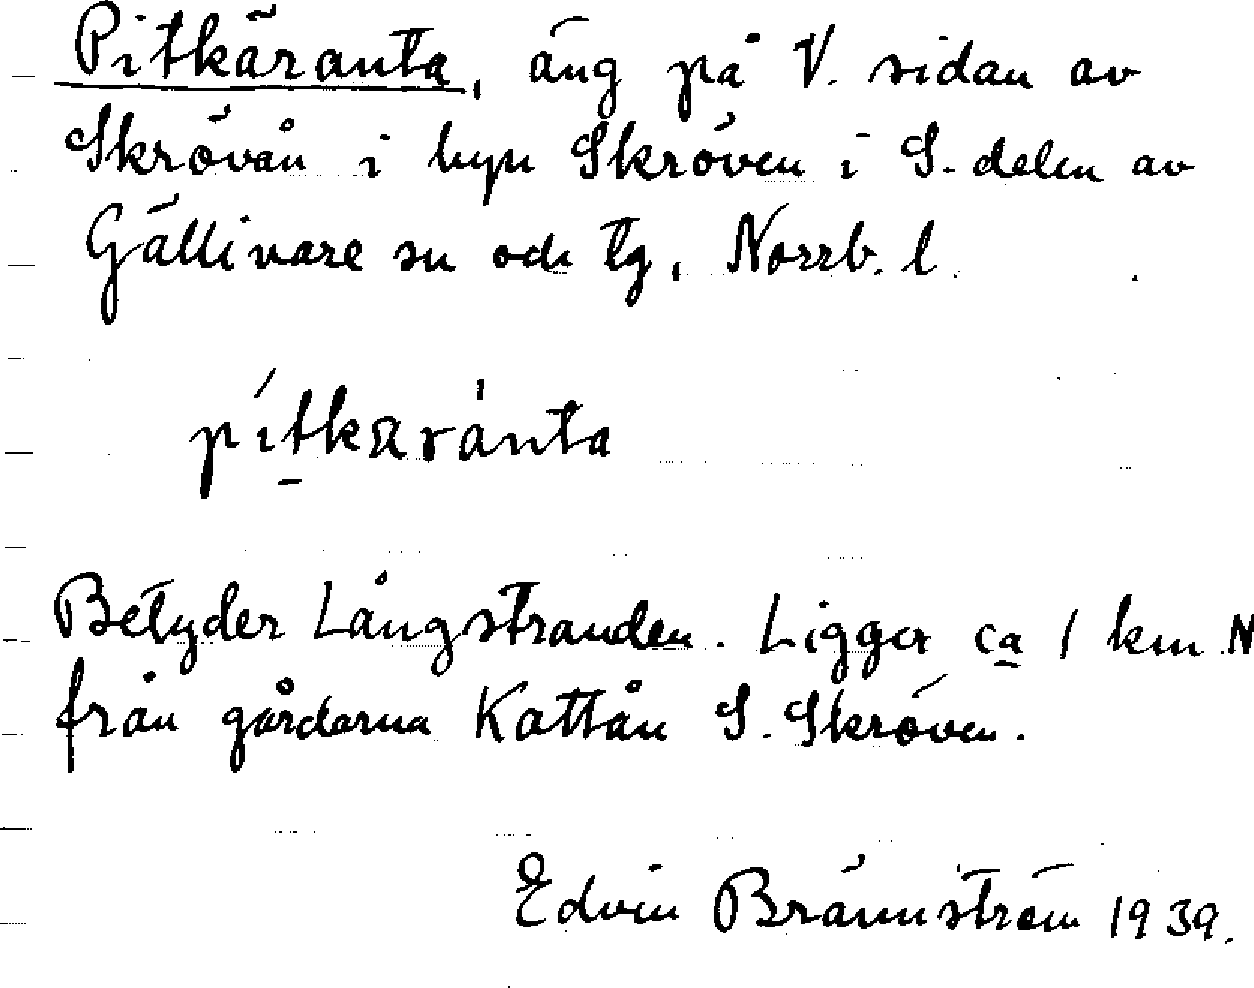 Pitkäranta, äng på V. sidan av
Skrövån i byn Skröven i S. delen av
Gällivare sn och tg, Norrb. l.
pitkäránta
Betyder Långstranden. Ligger ca 1 km N
från gårdarna Kattån S. Skröven.
Edvin Brännström 1939.